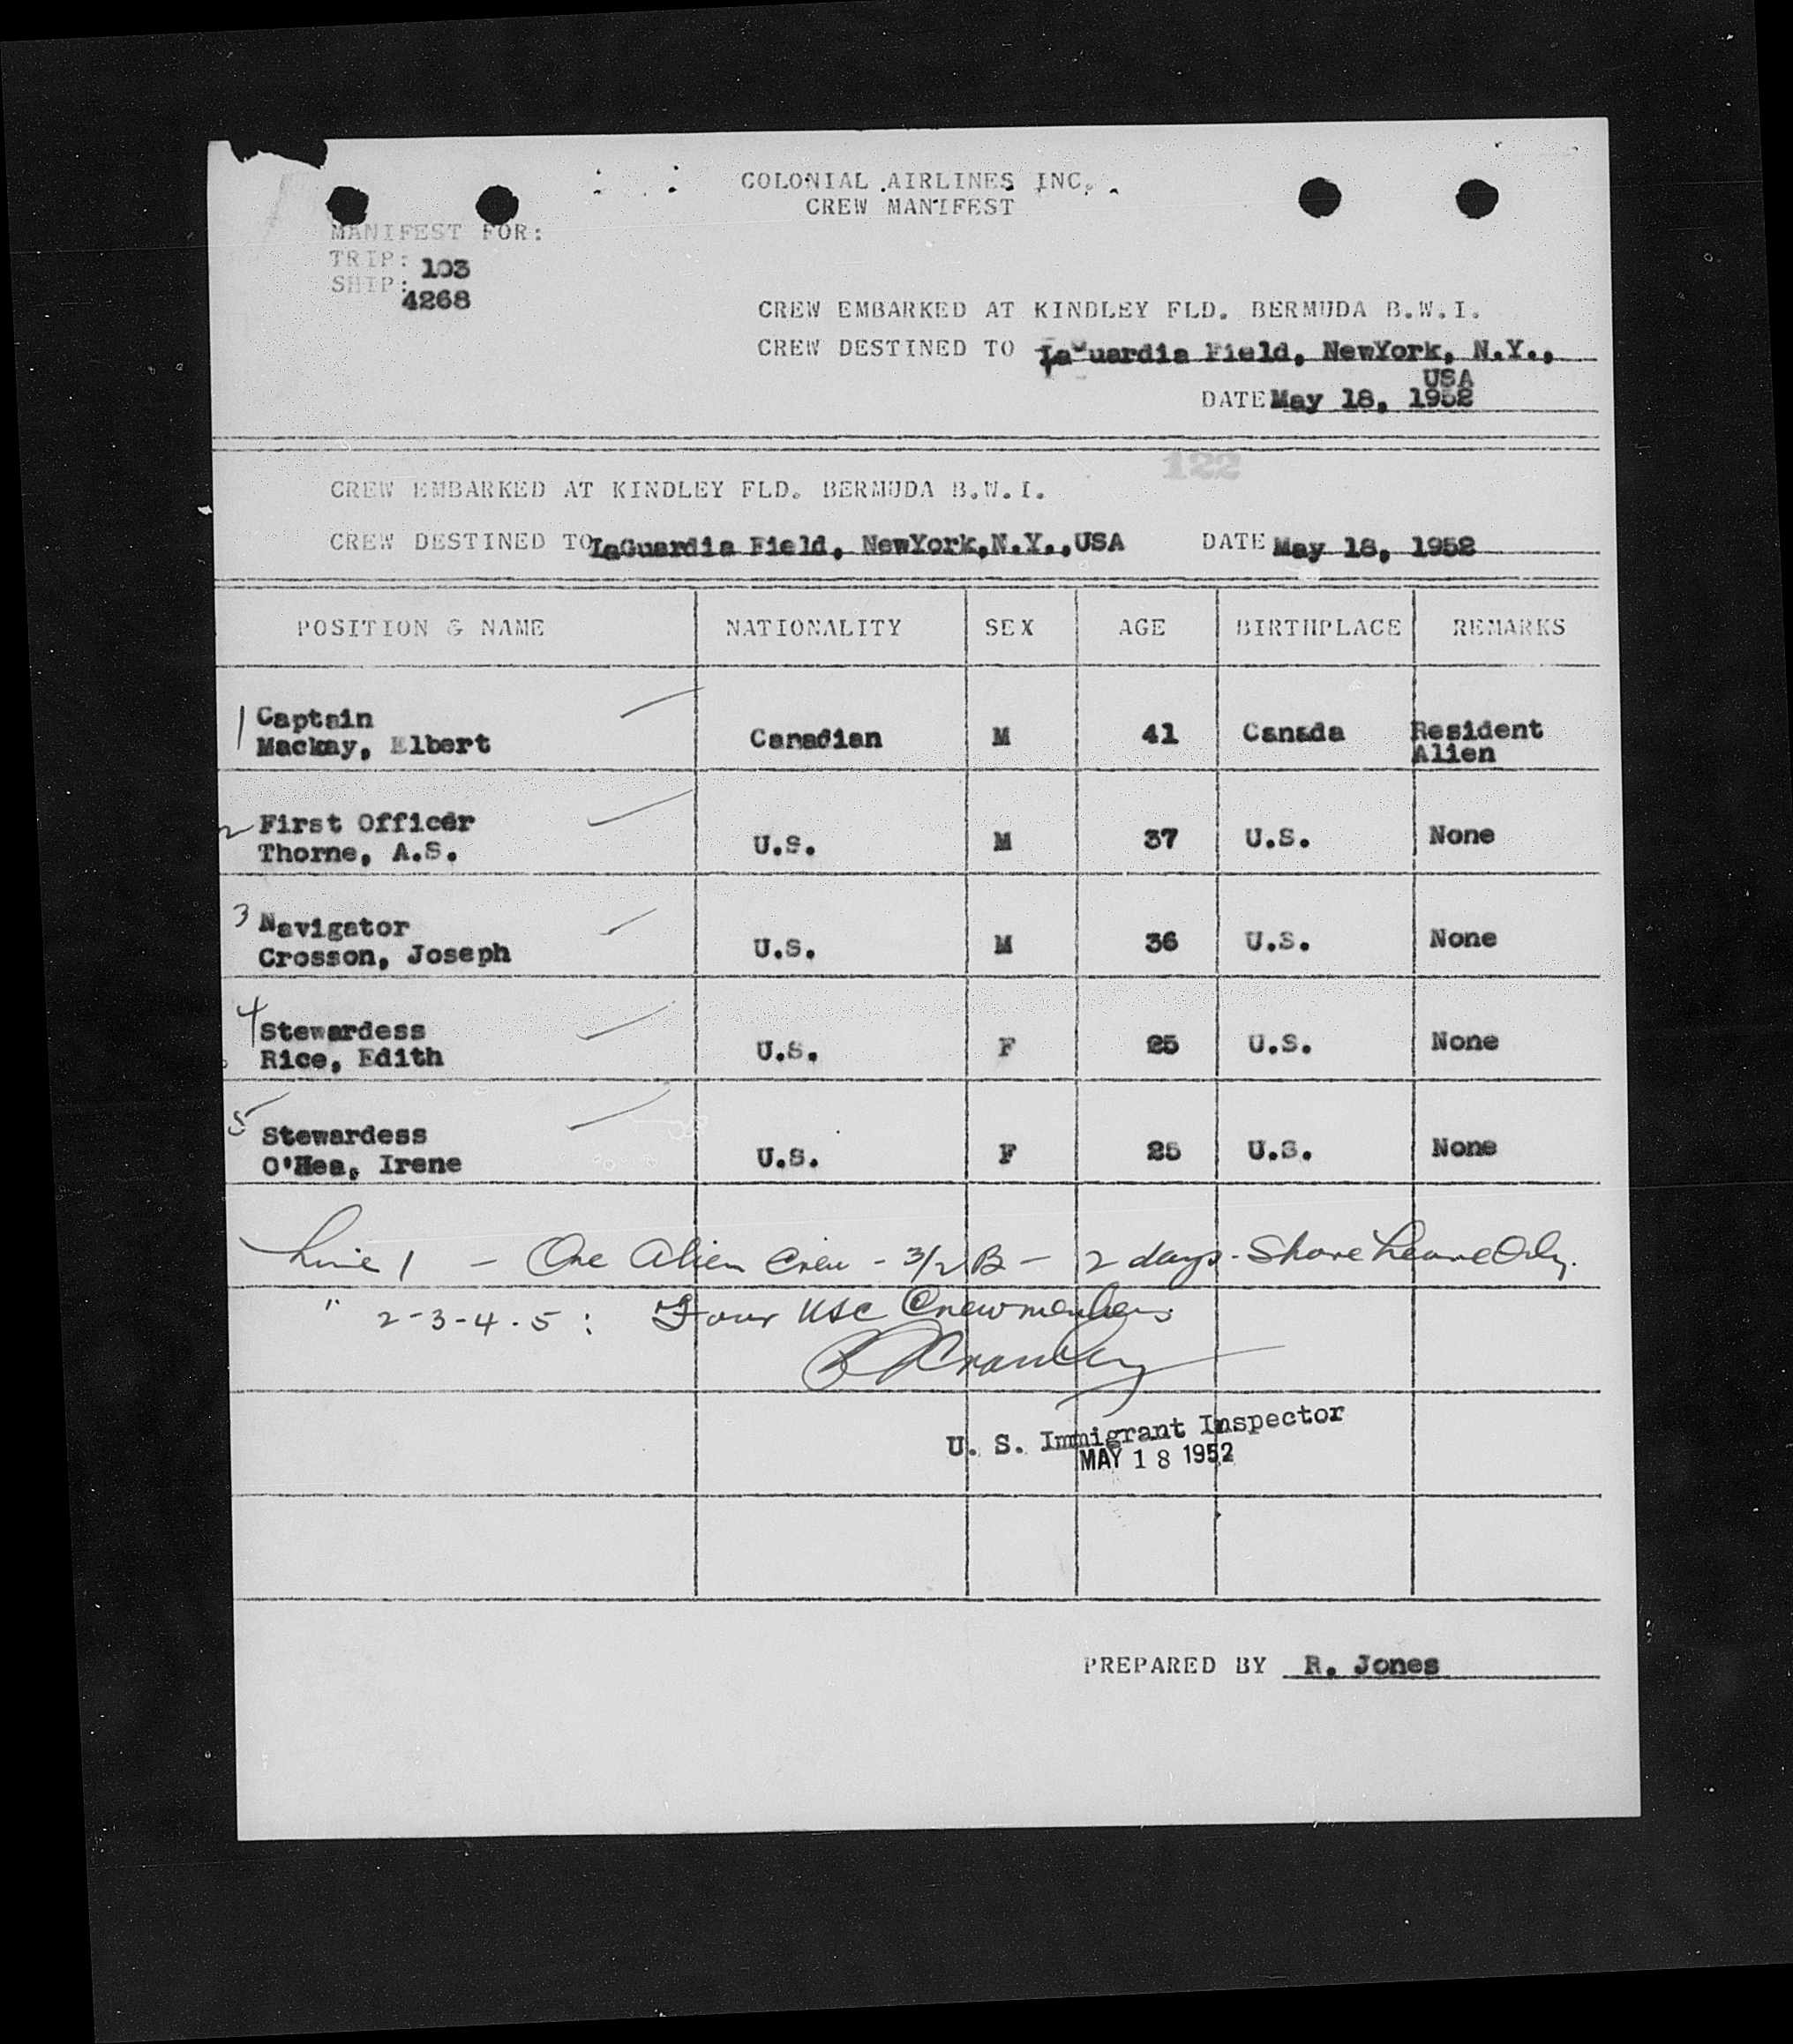 COLONIAL AIRLINES INC.
CREW MANIFEST
MANIFEST FOR:
TRIP: 103
SHIP: 4268
CREW EMBARKED AT KINDLEY FLD. BERMUDA B.W.I.
CREW DESTINED TO LaGuardia Field, NewYork, N.Y.,
USA
DATE May 18, 1952
122
CREW EMBARKED AT KINDLEY FLD. BERMUDA B.W.I.
CREW DESTINED TO LaGuardia Field, NewYork,N.Y.,USA DATE May 18, 1952
POSITION & NAME NATIONALITY SEX AGE BIRTHPLACE REMARKS
1 Captain
Mackay, Elbert Canadian M 41 Canada Resident
Alien
2 First Officer
Thorne, A.S. U.S. M 37 U.S. None
3 Navigator
Crosson, Joseph U.S. M 36 U.S. None
4 Stewardess
Rice, Edith U.S. F 25 U.S. None
5 Stewardess
O'Hea, Irene U.S. F 25 U.S. None
Line 1 - One Alien Crew - 3/2 B - 2 days - Shore Leave Only.
" 2-3-4-5: Four USC Crewmembers
U. S. Immigrant Inspector
MAY 18 1952
PREPARED BY R. Jones